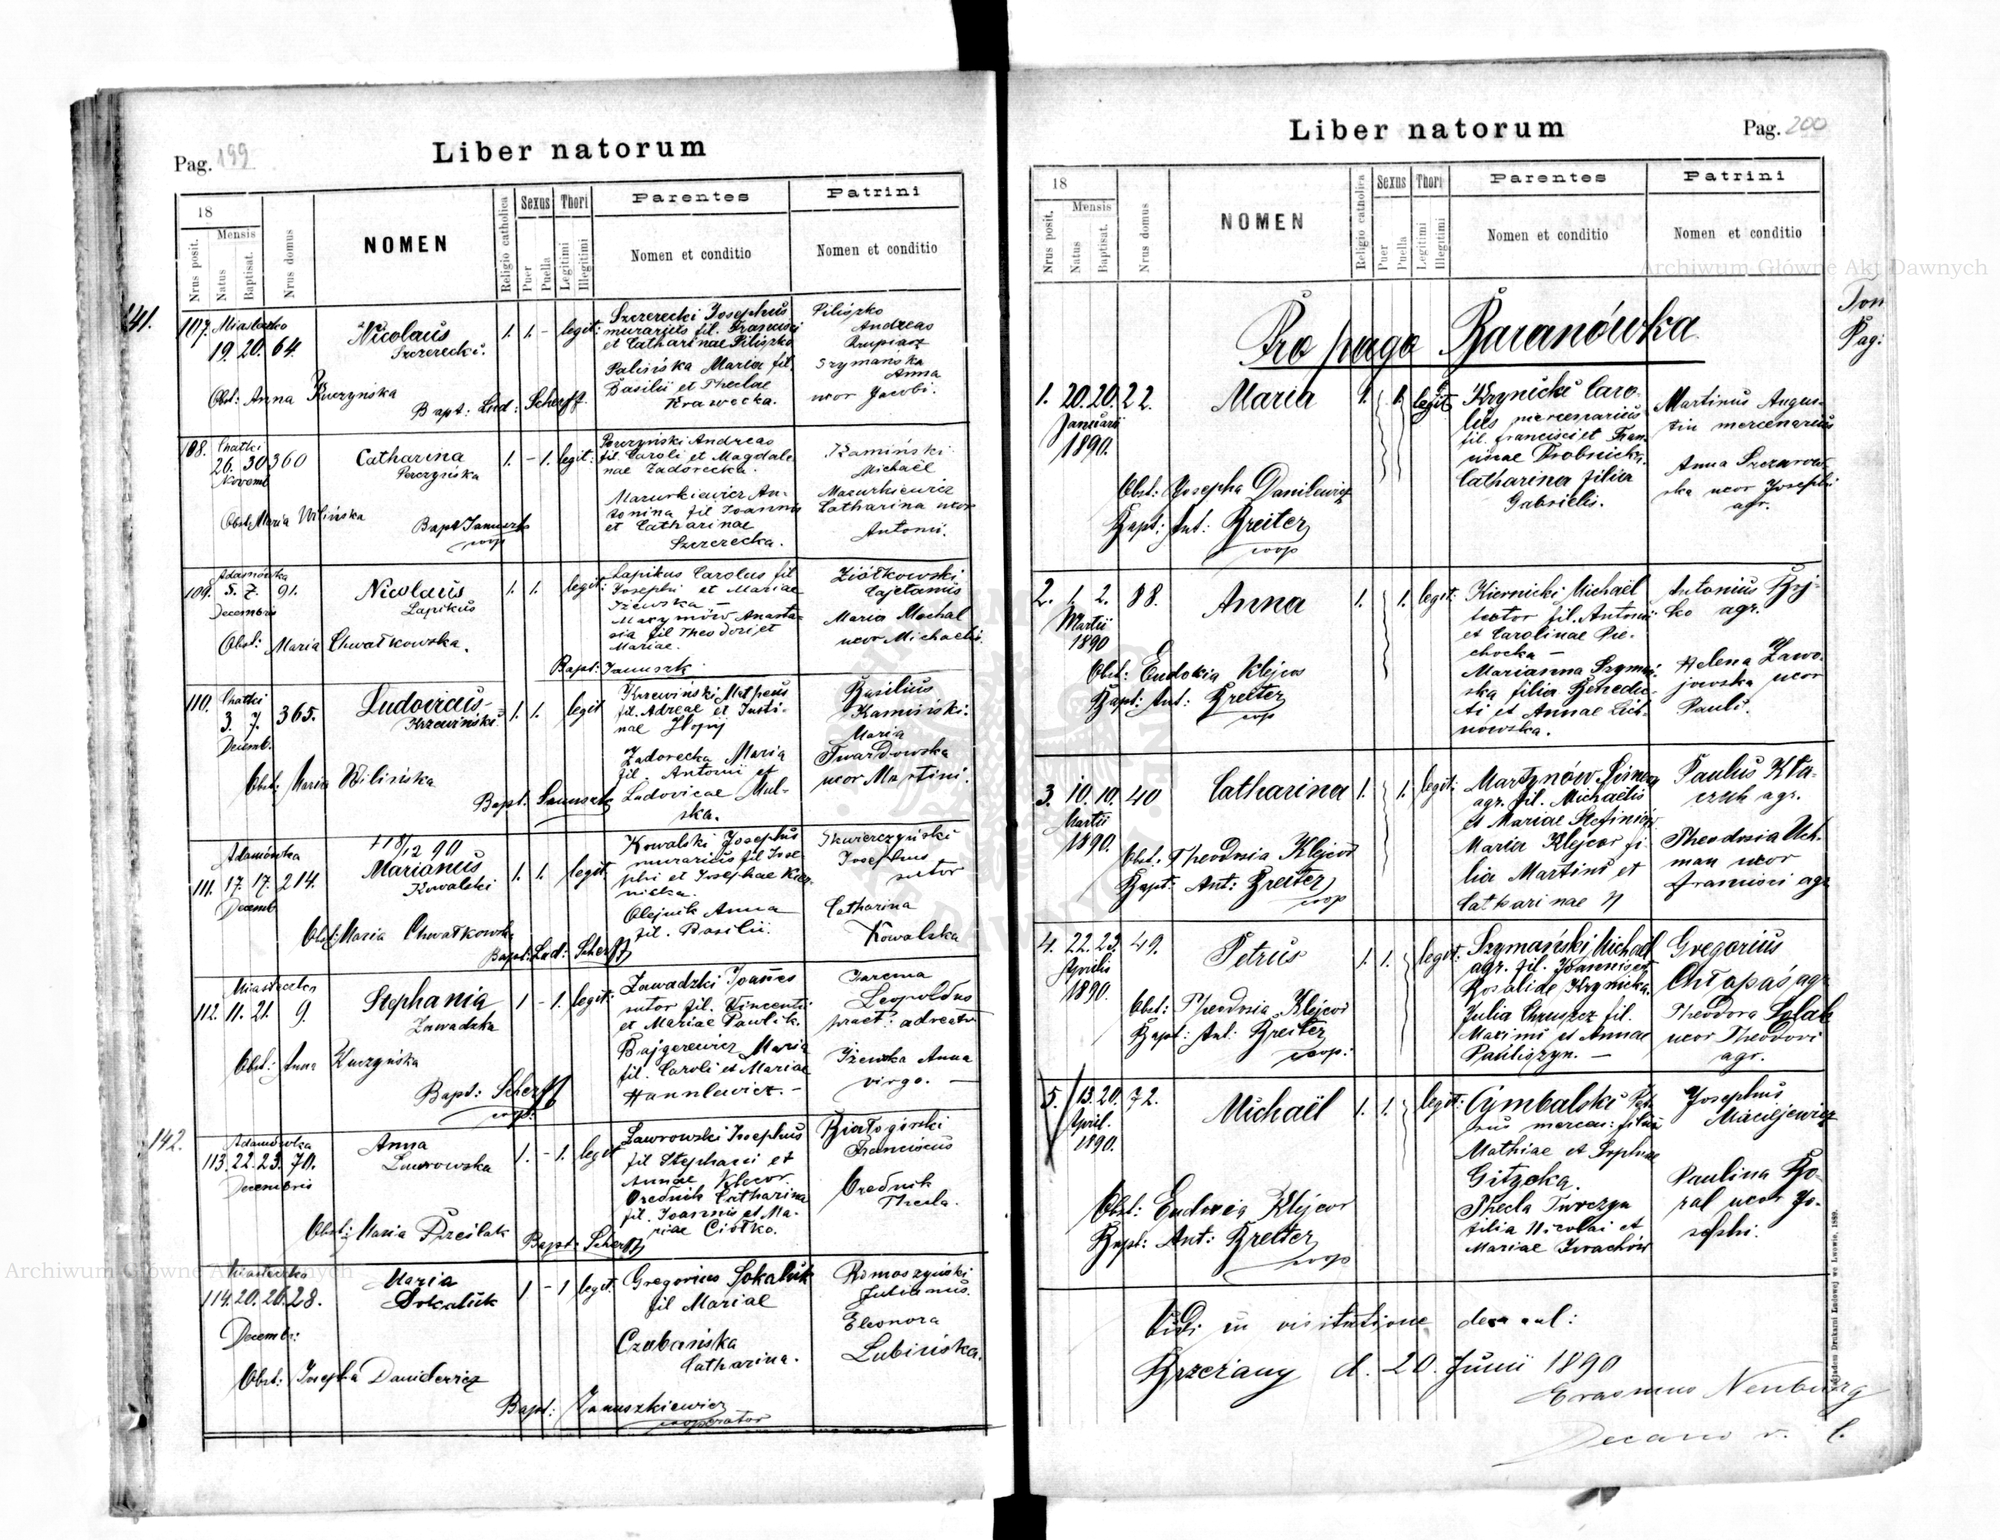 Pag. 199
Liber natorum
18
Nrus posit.
Mensis
Natus
Baptisat.
Nrus domus
NOMEN
Religio catholica
Sexus
Puer
Puella
Thori
Legitimi
Illegitimi
Parentes
Nomen et conditio
Patrini
Nomen et conditio
141.
107. Miasteczko
19. 20. 64.
Nicolaus
Szczerecki.
1. 1. - legit:
Szczerecki Josephus
murarius fil. Francisci
et Catharinae Piliszko
Palińska Maria fil.
Basilii et Theclae
Krawecka.
Piliszko
Andreas
Krupiarz
Szymańska
Anna
uxor Jacobi.
Obst: Anna Kuczyńska
Bapt: Lud: Scherff.
108. Chatki
26. 30 360
Novemb
Catharina
Perczyńska
1. - 1. legit:
Perczyński Andreas
fil. Caroli et Magdale
nae Zadorecka.
Mazurkiewicz An-
tonina fil Joannis
et Catharinae
Szczerecka.
Kamiński
Michaël
Mazurkiewicz
Catharina uxor
Antonii.
Obst: Maria Wilińska
Bapt: Januszk
coop
109. Adamówka
5. 7. 91.
Decembris
Nicolaus
Lapikus
1. 1. legit:
Lapikus Carolus fil
Josephi et Mariae
Iżewska -
Maxymów Anasta-
sia fil Theodori et
Mariae.
Ziółkowski
Cajetanus
Maria Machal
uxor Michaelis.
Obst: Maria Chwałkowska.
Bapt: Januszk.
110. Chatki
3. 7. 365.
Decemb.
Ludovicus
Krzewiński
1. 1. legit
Krzewiński Matheus
fil. Adreae et Justi-
nae Hojnij
Zadorecka Maria
fil. Antonii et
Ludovicae Mul-
ska.
Basilius
Kamiński.
Maria
Twardowska
uxor Martini.
Obst: Maria Wilińska
Bapt: Januszk
Adamówka
111. 17. 17. 214.
Decemb
+18/12 90
Marianus
Kowalski
1. 1. legit
Kowalski Josephus
murarius fil Jose-
phi et Josephae Kier-
nicka.
Olejnik Anna
fil. Basilii.
Skwierczyński
Josephus
sutor
Catharina
Kowalska
Obst: Maria Chwałkowska
Bapt: Lud: Scherff
Miasteczko
112. 11. 21. 9.
Stephania
Zawadzka
1 - 1. legit:
Zawadzki Joañes
sutor fil. Vincentii
et Mariae Pawlik.
Bajgerewicz Maria
fil. Caroli et Mariae
Hannlewicz. -
Jarema
Leopoldus
pract: advocati
Iżewska Anna
virgo. -
Obst: Anna Kuczyńska
Bapt: Scherff
coop.
142.
Adamówka
113. 22. 23. 70.
Decembris
Anna
Lawrowska
1. - 1. legit
Lawrowski Josephus
fil Stephani et
Annae Klecor.
Orednik Catharina
fil. Joannis et Ma-
riae Ciołko.
Białogórski
Franciscus
Orednik
Thecla.
Obst: Maria Prześlak
Bapt: Scherff
Miasteczko
114. 20. 26. 28.
Decemb:
Maria
Sokaluk
1 - 1 legit
Gregorius Sokaluk
fil Mariae
Czabańska
Catharina.
Romaszyński
Julianus.
Eleonora
Lubińska.
Obst: Josepha Danilewicz
Bapt: Januszkiewicz
cooperator
Liber natorum
Pag. 200
18
Nrus posit.
Mensis
Natus
Baptisat.
Nrus domus
NOMEN
Religio catholica
Sexus
Puer
Puella
Thori
Legitimi
Illegitimi
Parentes
Nomen et conditio
Patrini
Nomen et conditio
Tom
Pag:
Pro pago Baranówka
1. 20. 20. 22.
Januarii
1890.
Maria
1. 1. legit
Krynicki Caro-
lus mercenarius
fil. Francisci et Fran-
ciscae Drobnicka.
Catharina filia
Gabrielis.
Martinus Augus-
tin mercenarius
Anna Szczurow-
ska uxor Josephi
agr.
Obst: Josepha Danilewicz
Bapt: Ant: Breiter
coop
2. 1. 2. 88.
Martii
1890
Anna
1. 1. legit:
Kiernicki Michaël
textor fil. Antonii
et Carolinae Pie-
chocka -
Marianna Szymań-
ska filia Benedic-
ti et Annae Lich-
nowska.
Antonius Boj-
ko agr.
Helena Zawo-
jowska uxor
Pauli.
Obst: Eudokia Klejcor
Bapt: Ant: Breiter
coop
3. 10. 10. 40
Martii
1890.
Catharina
1. 1. legit:
Martynów Simeon
agr. fil. Michaëlis
et Mariae Stefiniow
Maria Klejcor fi-
lia Martini et
Catharinae N
Paulus Kła-
czuk agr.
Theodosia Uch-
man uxor
Francisci agr
Obst: Theodosia Klejcor
Bapt: Ant: Breiter
coop
4. 22. 23. 49.
Aprilis
1890.
Petrus
1. 1. legit:
Szymański Michaël
agr. fil. Joannis et
Rosalide Krynicka.
Julia Chruszcz fil.
Maximi et Annae
Pauliszyn. -
Gregorius
Chłapaś agr
Theodora Solak
uxor Theodori
agr.
Obst: Theodosia Klejcor
Bapt: Ant: Breiter
coop.
5. 13. 20. 72.
April.
1890.
Michaël
1. 1. legit:
Cymbalski Pet-
rus mercen: filius
Mathiae et Sophiae
Giżycka.
Thecla Turczyn
filia Nicolai et
Mariae Iwachów
Josephus
Maciejewicz
Paulina Ko-
ral uxor Jo-
sephi.
Obst: Eudoxia Klejcor
Bapt: Ant: Breiter
coop
Vidi in visitatione decanal:
Brzeżany d. 20. Junii 1890
Erasmus Neuburg
Decanus r. l.
Nakładem Drukarni Ludowej we Lwowie, 1889.
Archiwum Główne Akt Dawnych
Archiwum Główne Akt Dawnych